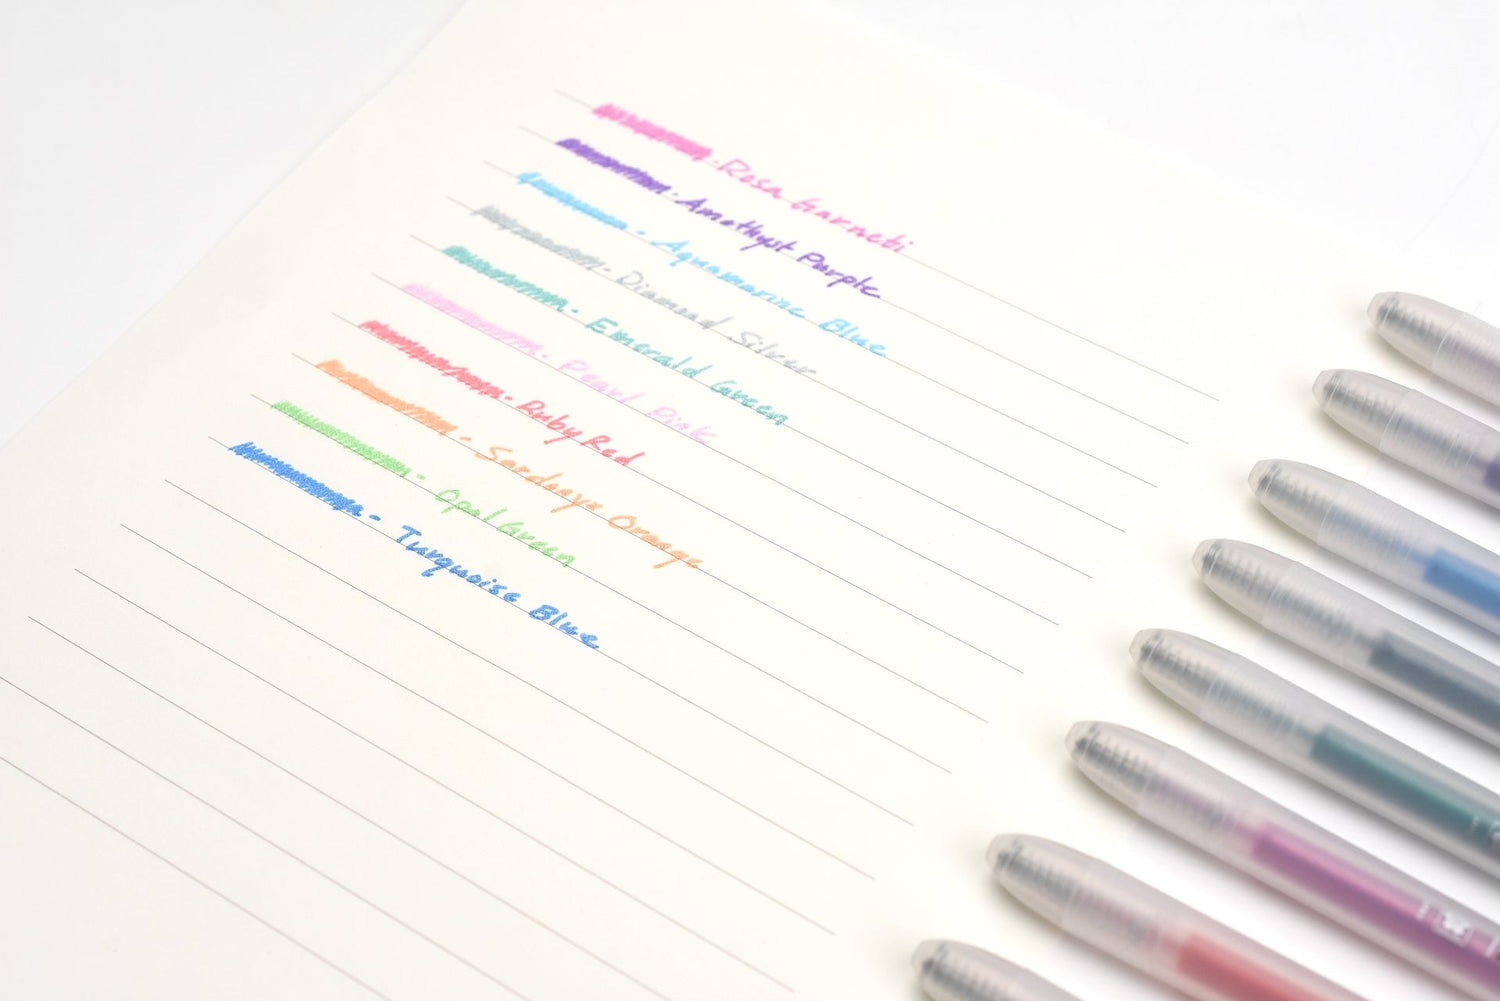 - Rosa Garneti
- Amethyst Purple
- Aquamarine Blue
- Diamond Silver
- Emerald Green
- Pearl Pink
- Ruby Red
- Sardonyx Orange
- Opal Green
- Turquoise Blue